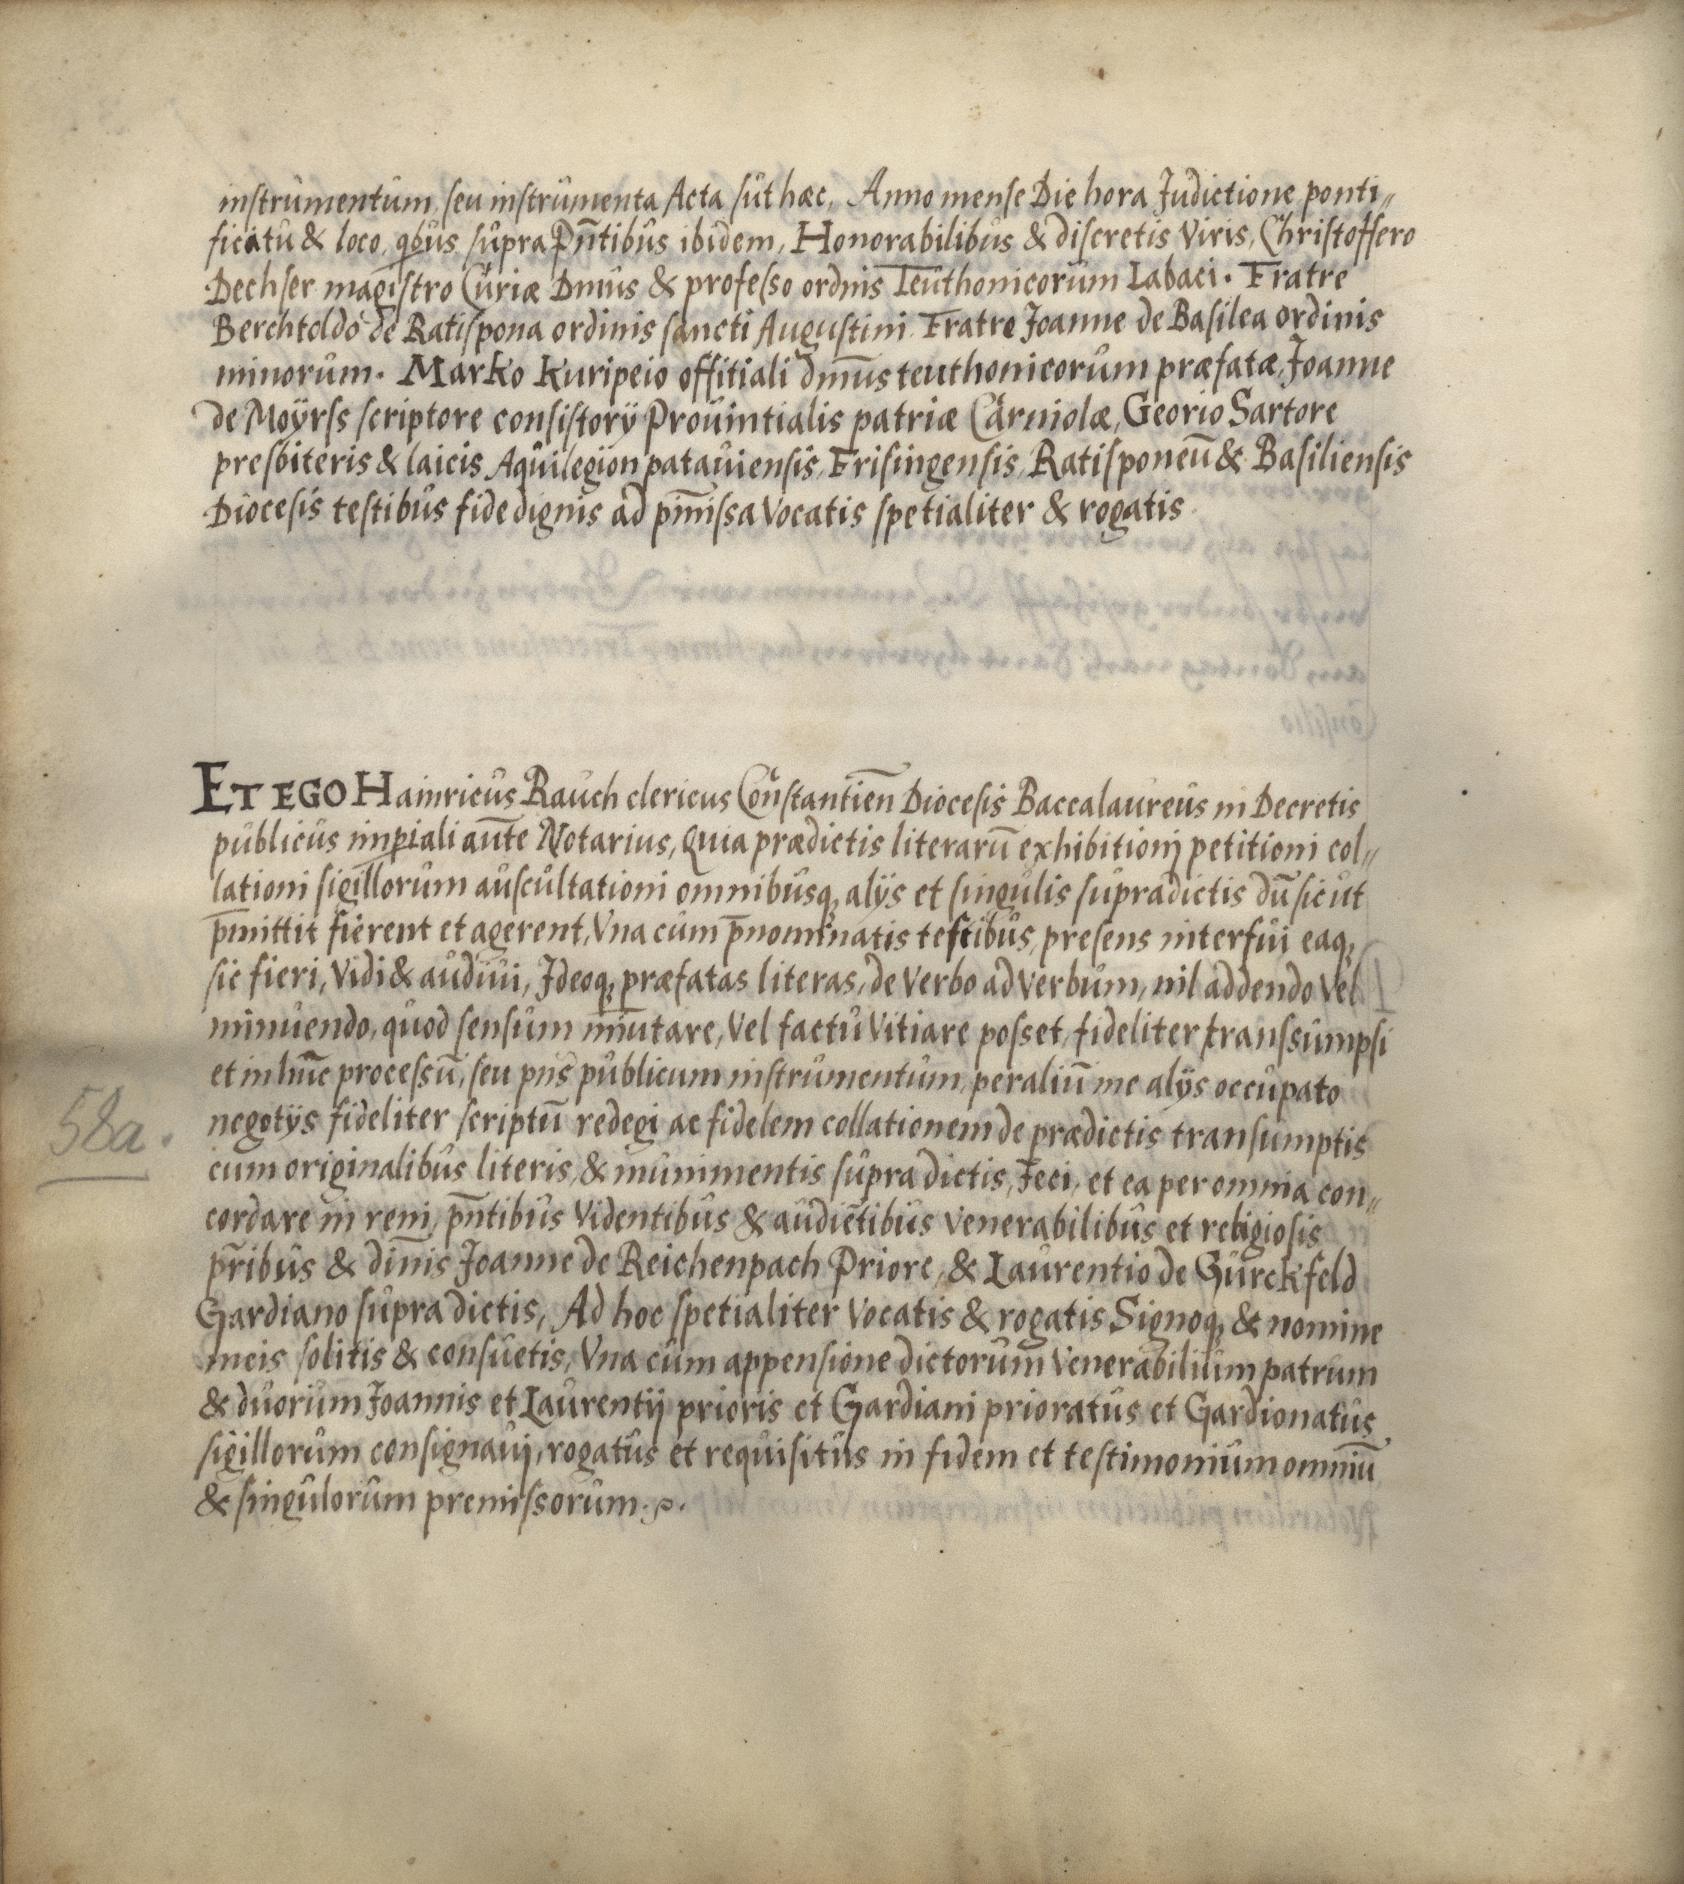 instrumentum, seu instrumenta Acta sūt hæc, Anno mense Die hora Judictione ponti„
ficatu & loco, qbus supra Pn̄tibus ibidem, Honorabilibus & discretis Viris, Christoffero
Dechser magistro Curiæ Dmus & professo ordnis Teuthonicorum Labaci. Fratre
Berchtoldo de Ratispona ordinis sancti Augustini. Fratre Joanne de Basilea ordinis
minorum. Marko Kuripeio offitiali dm̄us teuthonicorum præfatæ, Joanne
de Moÿrss scriptore consistorÿ Prouintialis patriæ Carniolæ, Georio Sartore
presbiteris & laicis Aquilegion patauiensis, Frisingensis, Ratisponeū & Basiliensis
Diocesis testibus fide dignis ad pm̄issa Vocatis spetialiter & rogatis
ET EGO Hainricus Rauch clericus Constantien̄ Diocesis Baccalaureus in Decretis
publicus imp̄iali aūte Notarius, Quia prædictis literarū exhibitionj petitioni col„
lationi sigillorum auscultationi omnibusq, alÿs et singulis supradictis dū sicut
p̄mittit fierent et agerent, Vna cum p̄nominatis testibus, presens interfui eaq,
sic fieri, Vidi & audiui, Ideoq, præfatas literas, de Verbo ad Verbum, nil addendo Vel
minuendo, quod sensum mūtare, Vel factu Vitiare posset, fideliter transsumpsi
et in hūc processū, seu pns publicum instrumentum, per aliū me alÿs occupato
negotÿs fideliter scriptū redegi ac fidelem collationem de prædictis transumptis
cum originalibus literis, & munimentis supra dictis, feci, et ea per omnia con„
cordare in reni, pn̄tibus Videntibus & audiētibus Venerabilibus et religiosis
pr̄ibus & din̄is Joanne de Reichenpach Priore, & Laurentio de Gurckfeld
Gardiano supra dictis, Ad hoc spetialiter Vocatis & rogatis Signoq, & nomine
meis solitis & consuetis, Vna cum appensione dictorum Venerabilium patrum
& duorum Joannis et Laurentij prioris et Gardiani prioratus et Gardionatus
sigillorum consignauj, rogatus et requisitus in fidem et testimonium omniū
& singulorum premissorum.
58a.